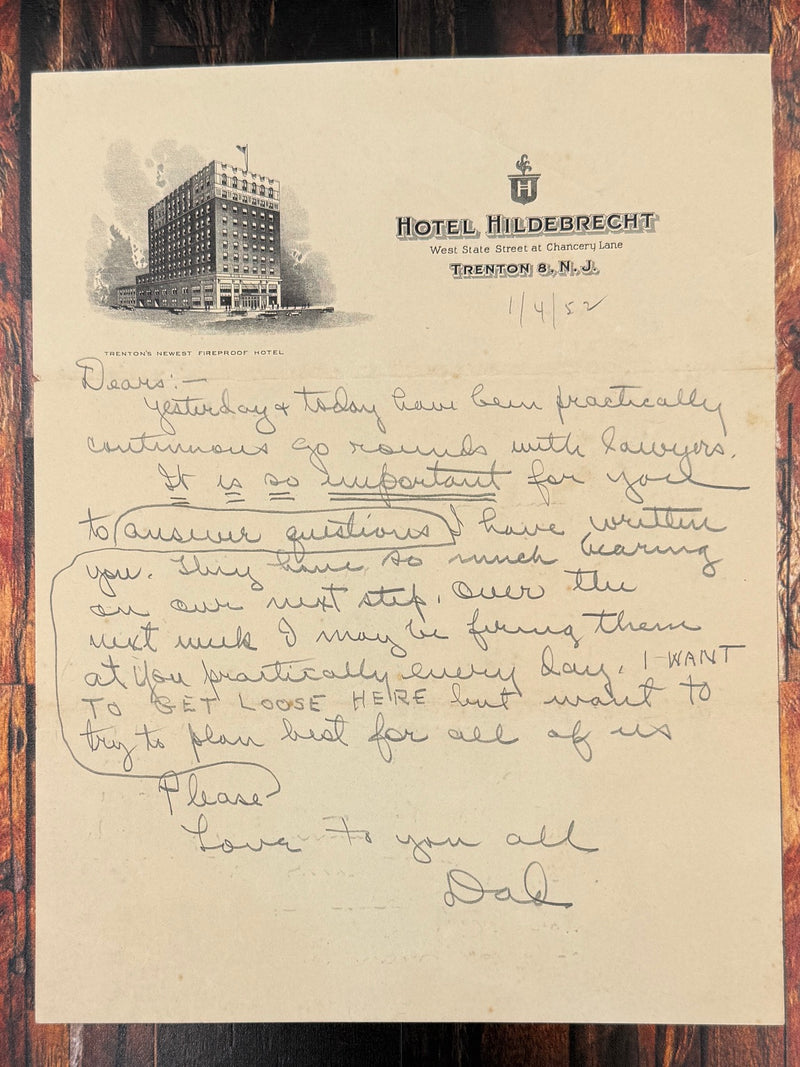 H
HOTEL HILDEBRECHT
West State Street at Chancery Lane
TRENTON 8, N. J.
1/4/52
TRENTON'S NEWEST FIREPROOF HOTEL
Dears:—
Yesterday & today have been practically
continuous go rounds with lawyers.
It is so important for you
to answer questions I have written
you. They have so much bearing
on our next step. Over the
next week I may be firing them
at you practically every day. I WANT
TO GET LOOSE HERE but want to
try to plan best for all of us
Please
Love to you all
Dad